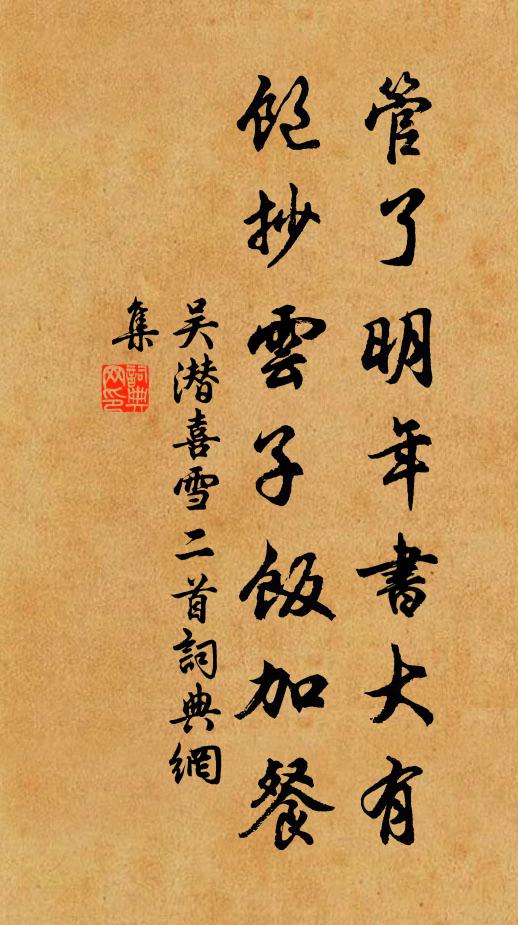 管了明年書大有
飽抄雲子飯加餐
吴潜喜雪二首詞典網
集
詞典網印